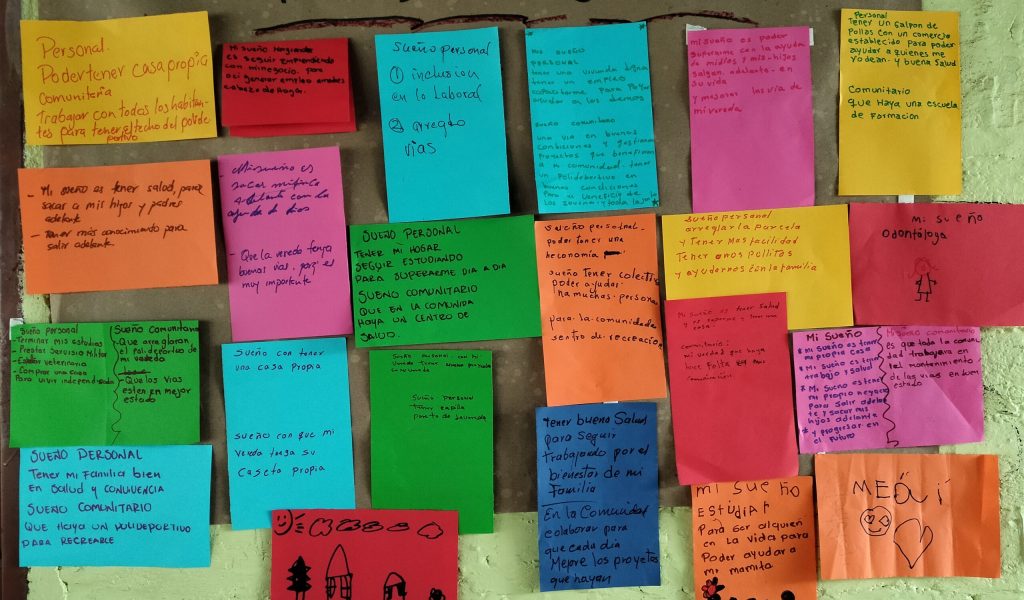 Personal.
Poder tener casa propia
Comunitaria
Trabajar con todos los habitan-
tes para tener el techo del polide
portivo
Mi sueño
es seguir emprendiendo
con mi negocio. para
generar empleo
cabeza de Hogar.
Sueño personal
① inclusion
en lo Laboral
② arreglo
vias
PERSONAL
tener una vivienda digna
tener un empleo
para Poder
ayudar a los demas
SUEÑO COMUNITARIO
una via en buenas
condiciones y gestionar
Proyectos que beneficien
a mi comunidad. tener
un Polideportivo en
buenas condiciones
Para el beneficio de
los Jovenes y toda la
mi sueño es poder
superarme con la ayuda
de mi dios y mis hijos
salgan adelante en
su vida
y mejorar las via de
mi vereda
Personal
Tener un Galpon de
Pollos con un comercio
establecido para poder
ayudar a quienes me
rodean y buena Salud
Comunitario
que Haya una escuela
de Formacion
- Mi sueño es tener salud, para
sacar a mis hijos y padres
adelante
- Tener más conocimiento para
salir adelante.
- Mi sueño es
sacar mi finca
adelante con la
ayuda de dios
- Que la vereda tenga
buenas vias. porq es
muy importante
SUEÑO PERSONAL
TENER MI HOGAR
SEGUIR ESTUDIANDO
PARA SUPERARME DIA A DIA
SUEÑO COMUNITARIO
QUE EN LA COMUNIDA
HAYA UN CENTRO DE
SALUD.
Sueño personal.
poder tener una
heconomia
sueño tener colectivo
poder ayudar
na muchas personas
para la comunidade
sentro de recreación
Sueño personal
arreglar la parcela
y Tener mas facilidad
Tener unos pollitos
y ayudarnos con la familia
Mi sueño
odontóloga
Sueño personal
- Terminar mis estudios
- Prestar Servisio Militar
- Estudiar veterinaria
- Comprar una casa
Para vivir independiente
Sueño Comunitario
- Que arreglaran
el Polideportivo de
mi vereda
- Que las vias
esten en mejor
estado
Sueño con tener
una casa Propia
Sueño con que mi
vereda tenga su
Caseta Propia
Sueño Personal
Sueño Personal
tener
Mi sueño es tener Salud
casa.
comunitario:
que haya
comunicacion.
Mi Sueño
* mi sueño es tener
mi propia casa
* Mi sueño es tener
trabajo y Salud
* Mi sueño es tener
mi propio negocio
para salir adelan
te y sacar mis
hijos adelante
* y progresar en
el Futuro
Mi sueño comunitario
es que toda la comuni
dad trabajara en
el mantenimiento
de las vias en buen
estado
SUEÑO PERSONAL
Tener mi Familia bien
en Salud y convivencia
SUEÑO COMUNITARIO
QUE HAYA UN POLIDEPORTIVO
PARA RECREARLE
Tener buena Salud
para Seguir
trabajando por el
bienestar de mi
Familia
En la Comunidad
colaborar para
que cada dia
Mejore los proyetos
que hayan
mi sueño
ESTUDIAR
Para ser alguien
en La vida para
Poder ayudar a
mi mamita